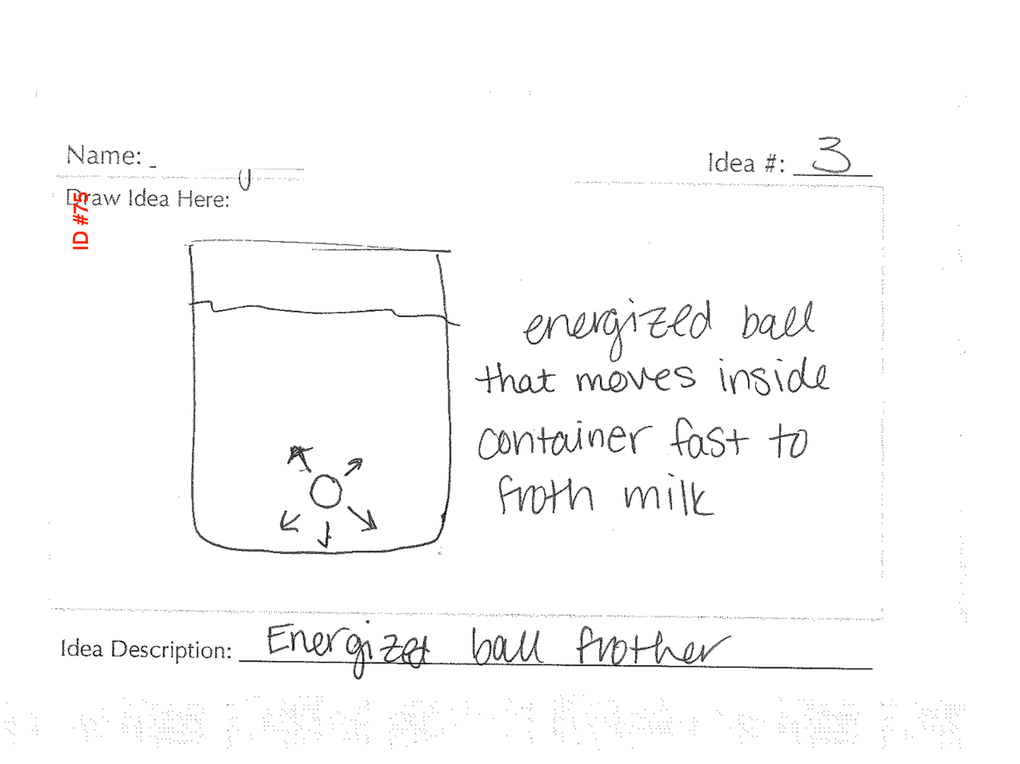 Name:
Idea #: 3
Draw Idea Here:
ID #75
energized ball
that moves inside
container fast to
froth milk
Idea Description: Energized ball frother